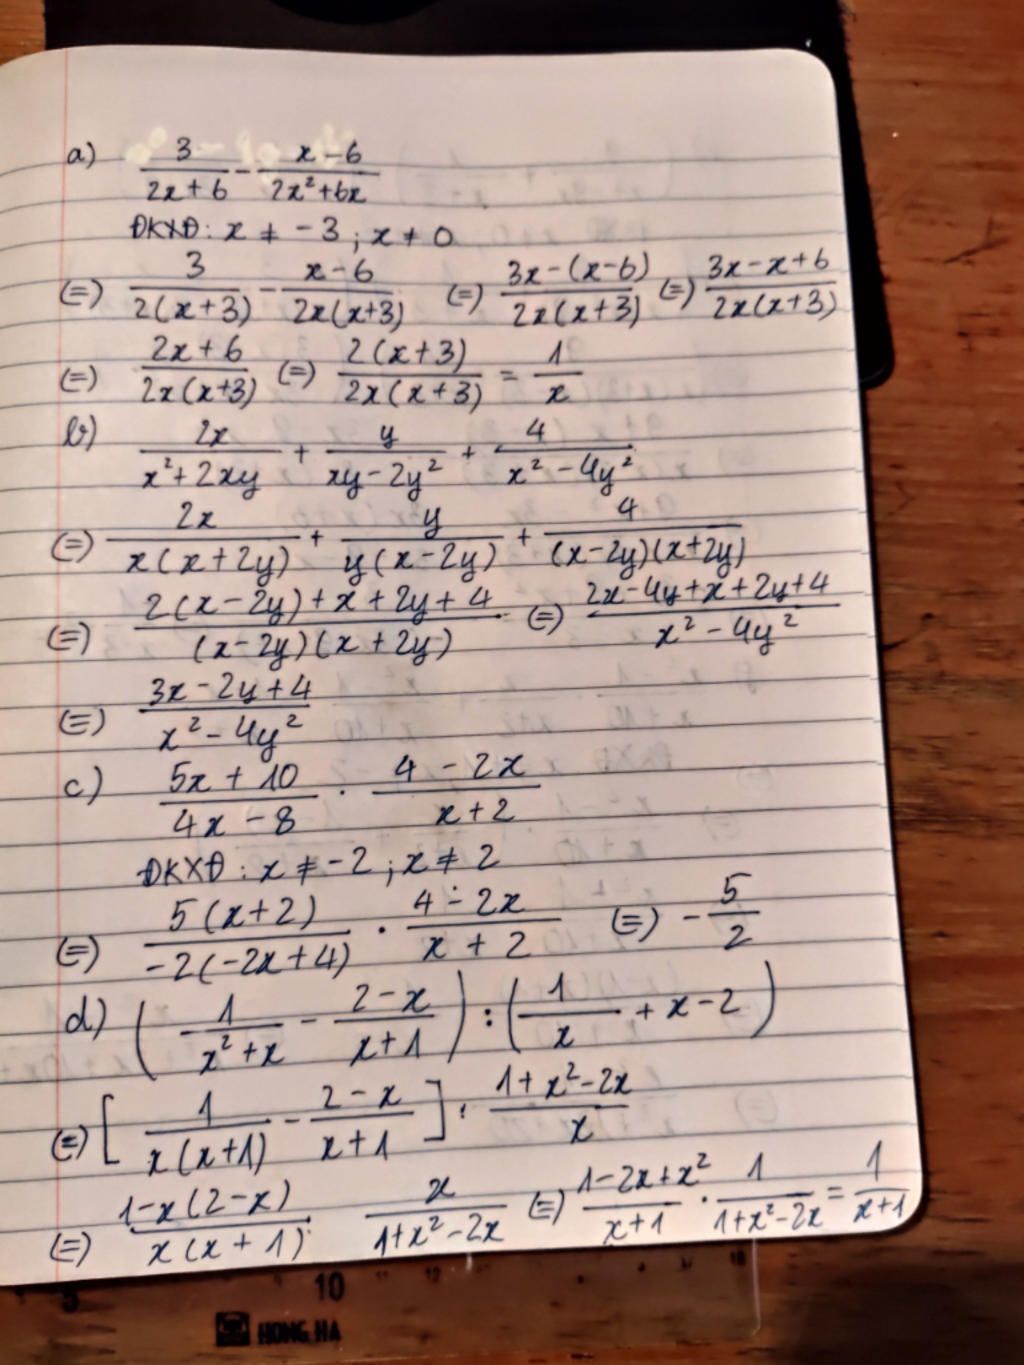 a) 3/(2x+6) - (x-6)/(2x²+6x)
ĐKXĐ: x ≠ -3 ; x ≠ 0
(=) 3/(2(x+3)) - (x-6)/(2x(x+3)) (=) (3x-(x-6))/(2x(x+3)) (=) (3x-x+6)/(2x(x+3))
(=) (2x+6)/(2x(x+3)) (=) (2(x+3))/(2x(x+3)) = 1/x
b) 2x/(x²+2xy) + y/(xy-2y²) + 4/(x²-4y²)
(=) 2x/(x(x+2y)) + y/(y(x-2y)) + 4/((x-2y)(x+2y))
(=) (2(x-2y)+x+2y+4)/((x-2y)(x+2y)) (=) (2x-4y+x+2y+4)/(x²-4y²)
(=) (3x-2y+4)/(x²-4y²)
c) (5x+10)/(4x-8) · (4-2x)/(x+2)
ĐKXĐ: x ≠ -2 ; x ≠ 2
(=) (5(x+2))/(-2(-2x+4)) · (4-2x)/(x+2) (=) -5/2
d) (1/(x²+x) - (2-x)/(x+1)) : (1/x + x-2)
(=) [1/(x(x+1)) - (2-x)/(x+1)] : (1+x²-2x)/x
(=) (1-x(2-x))/(x(x+1)) · x/(1+x²-2x) (=) (1-2x+x²)/(x+1) · 1/(1+x²-2x) = 1/(x+1)
5 10 11 12
HONG HA